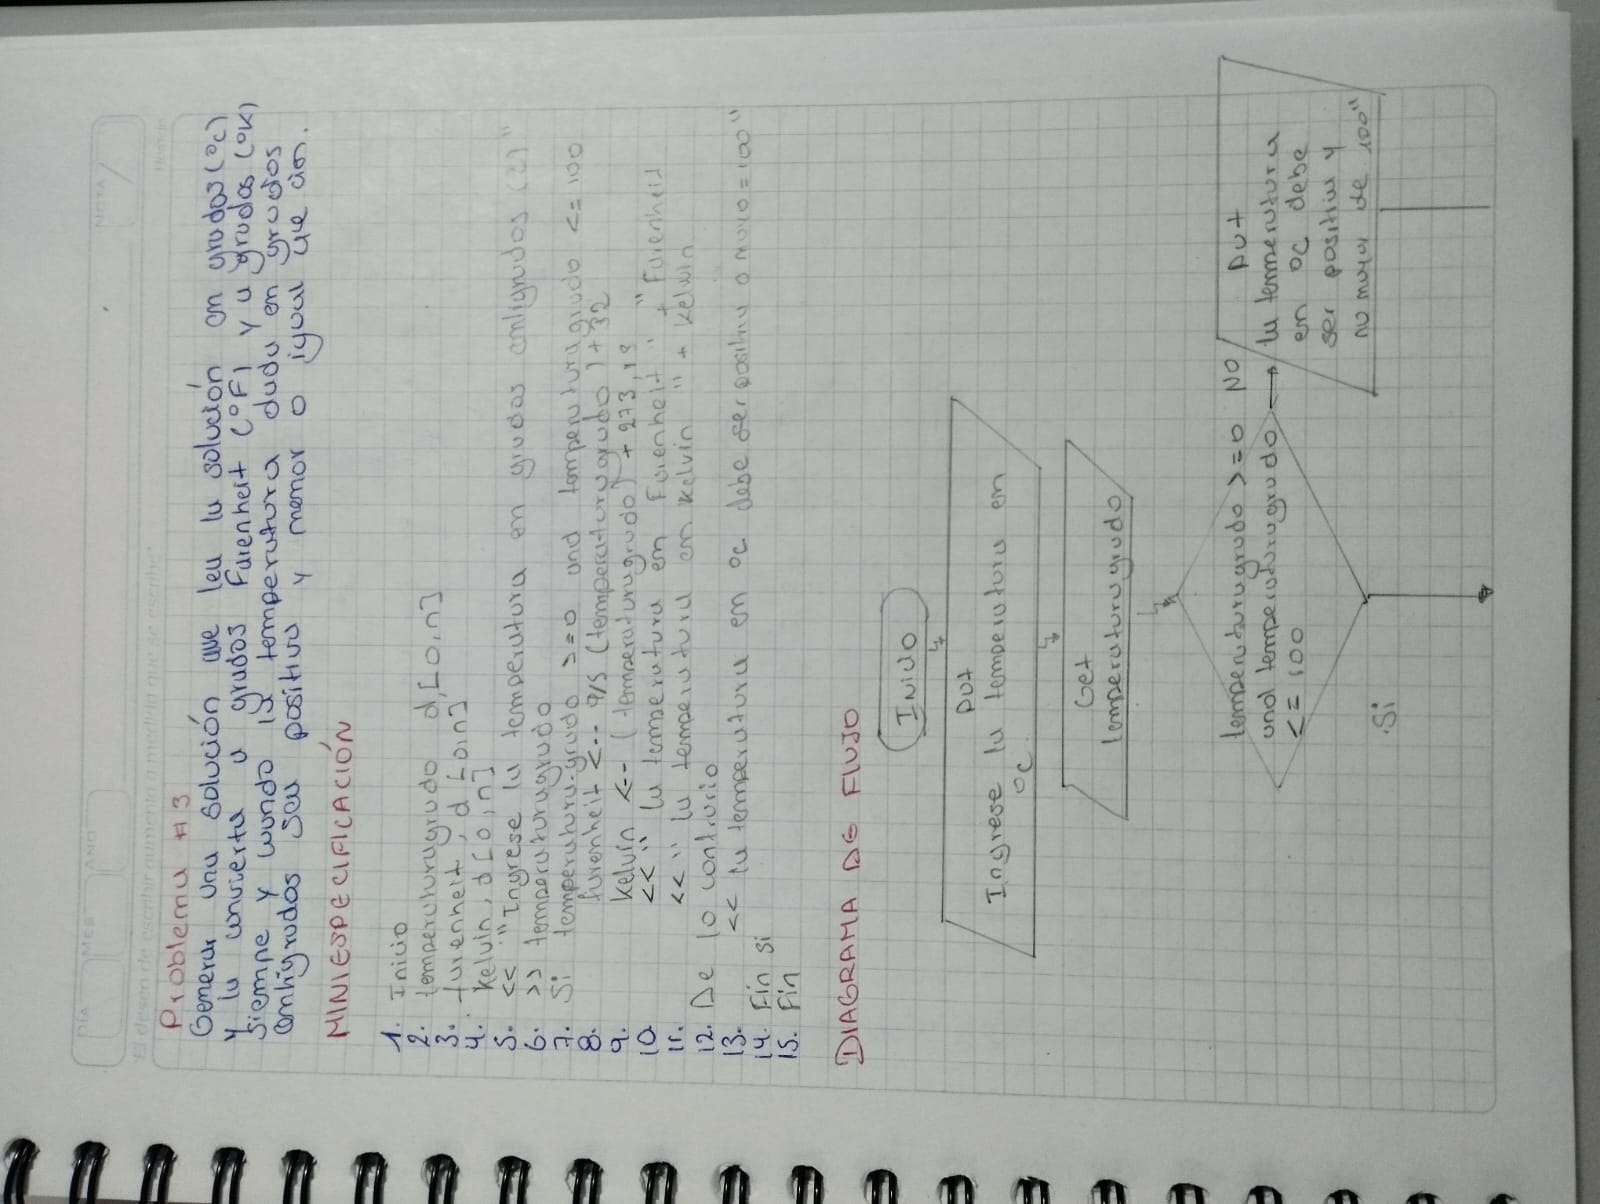 NOTA
DIA MES AÑO
Problema #3
Generar una solución que lea la solución en grados (°c)
y la convierta a grados Farenheit (°F) y a grados (°K)
siempre y cuando la temperatura dada en grados
centígrados sea positiva y menor o igual que cien.
MINIESPECIFICACIÓN
1. Inicio
2. temperaturagrado d,[0,n]
3. farenheit, d [0,n]
4. Kelvin, d[0,n]
5. << "Ingrese la temperatura en grados
6. >> temperaturagrado
7. Si temperatura.grado >=0 and temperaturagrado <=100
8. farenheit <-- 9/5 (temperaturagrado)+32
9. Kelvin <-- (temperaturagrado) + 273,15
10. << " la temperatura en Farenheit " + Farenheit
11. << " la temperatura en Kelvin " + Kelvin
12. De lo contrario
13. << la temperatura en °c debe ser positiva o =100"
14. Fin si
15. Fin
DIAGRAMA DE FLUJO
Inicio
put
Ingrese la temperatura en
°c
Get
temperaturagrado
temperaturagrado >=0
and temperaturagrado
<= 100
NO
put
la temperatura
en °c debe
ser positiva y
no mayor de 100"
Si